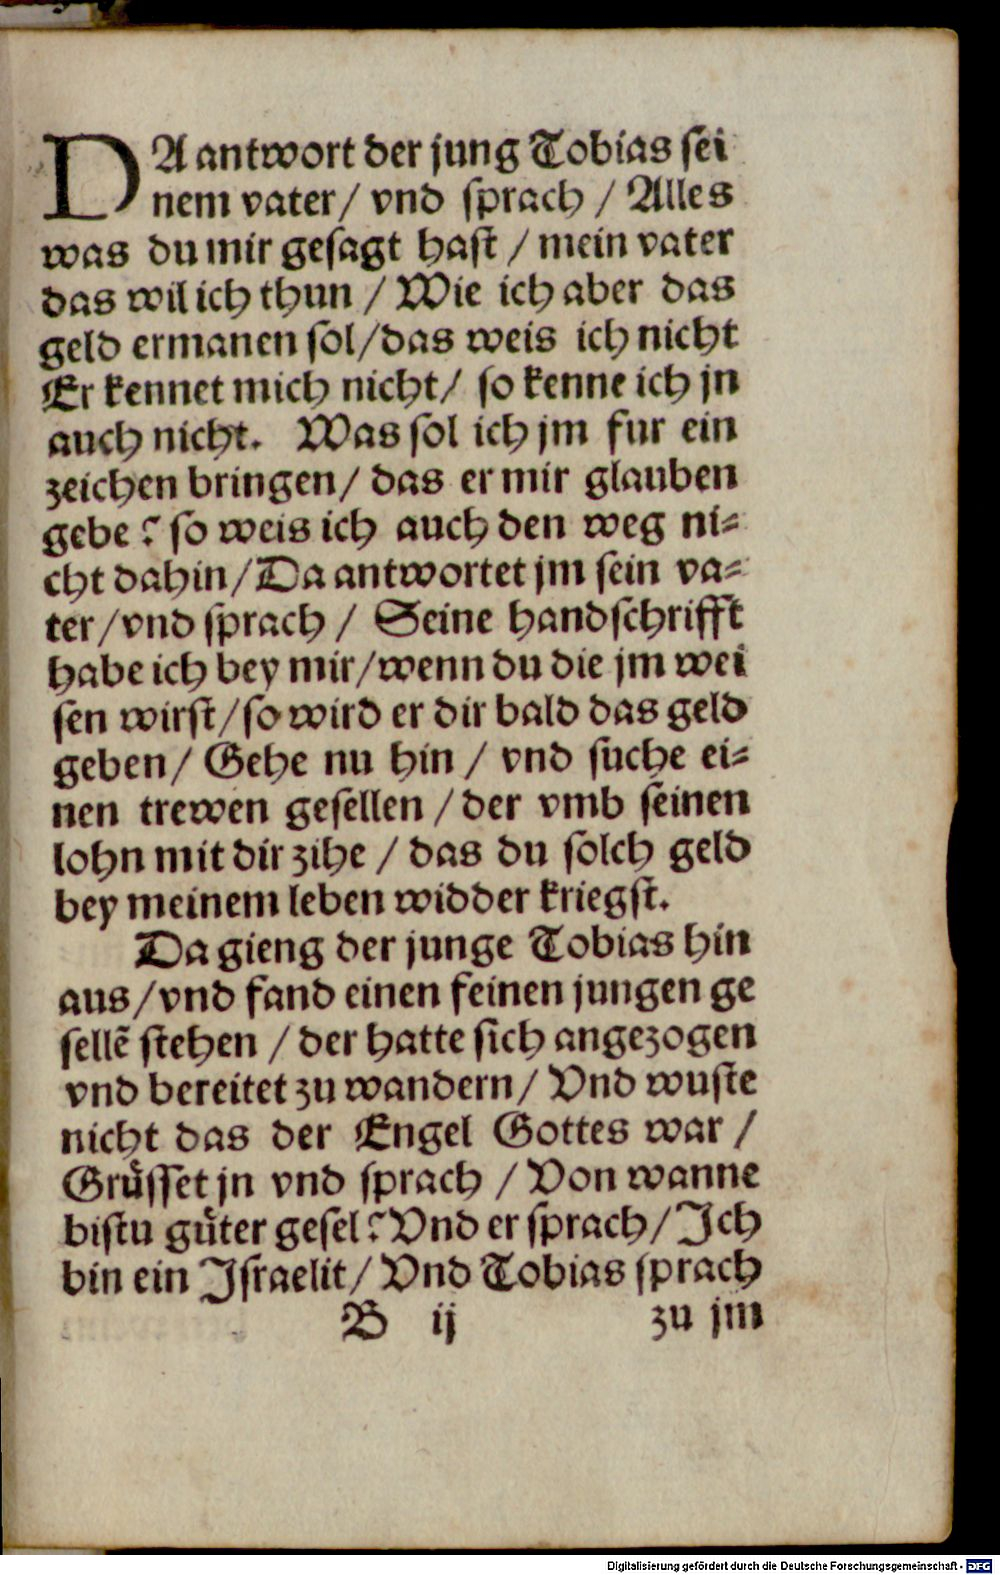 DA antwort der jung Tobias sei
nem vater / vnd sprach / Alles
was du mir gesagt hast / mein vater
das wil ich thun / Wie ich aber das
geld ermanen sol / das weis ich nicht
Er kennet mich nicht / so kenne ich jn
auch nicht. Was sol ich jm fur ein
zeichen bringen / das er mir glauben
gebe? so weis ich auch den weg ni=
cht dahin / Da antwortet jm sein va=
ter / vnd sprach / Seine handschrifft
habe ich bey mir / wenn du die jm wei
sen wirst / so wird er dir bald das geld
geben / Gehe nu hin / vnd suche ei=
nen trewen gesellen / der vmb seinen
lohn mit dir zihe / das du solch geld
bey meinem leben widder kriegst.
Da gieng der junge Tobias hin
aus / vnd fand einen feinen jungen ge
sellẽ stehen / der hatte sich angezogen
vnd bereitet zu wandern / Vnd wuste
nicht das der Engel Gottes war /
Grüsset jn vnd sprach / Von wanne
bistu güter gesel? Vnd er sprach / Ich
bin ein Israelit / Vnd Tobias sprach
B ij zu jm
Digitalisierung gefördert durch die Deutsche Forschungsgemeinschaft - DFG